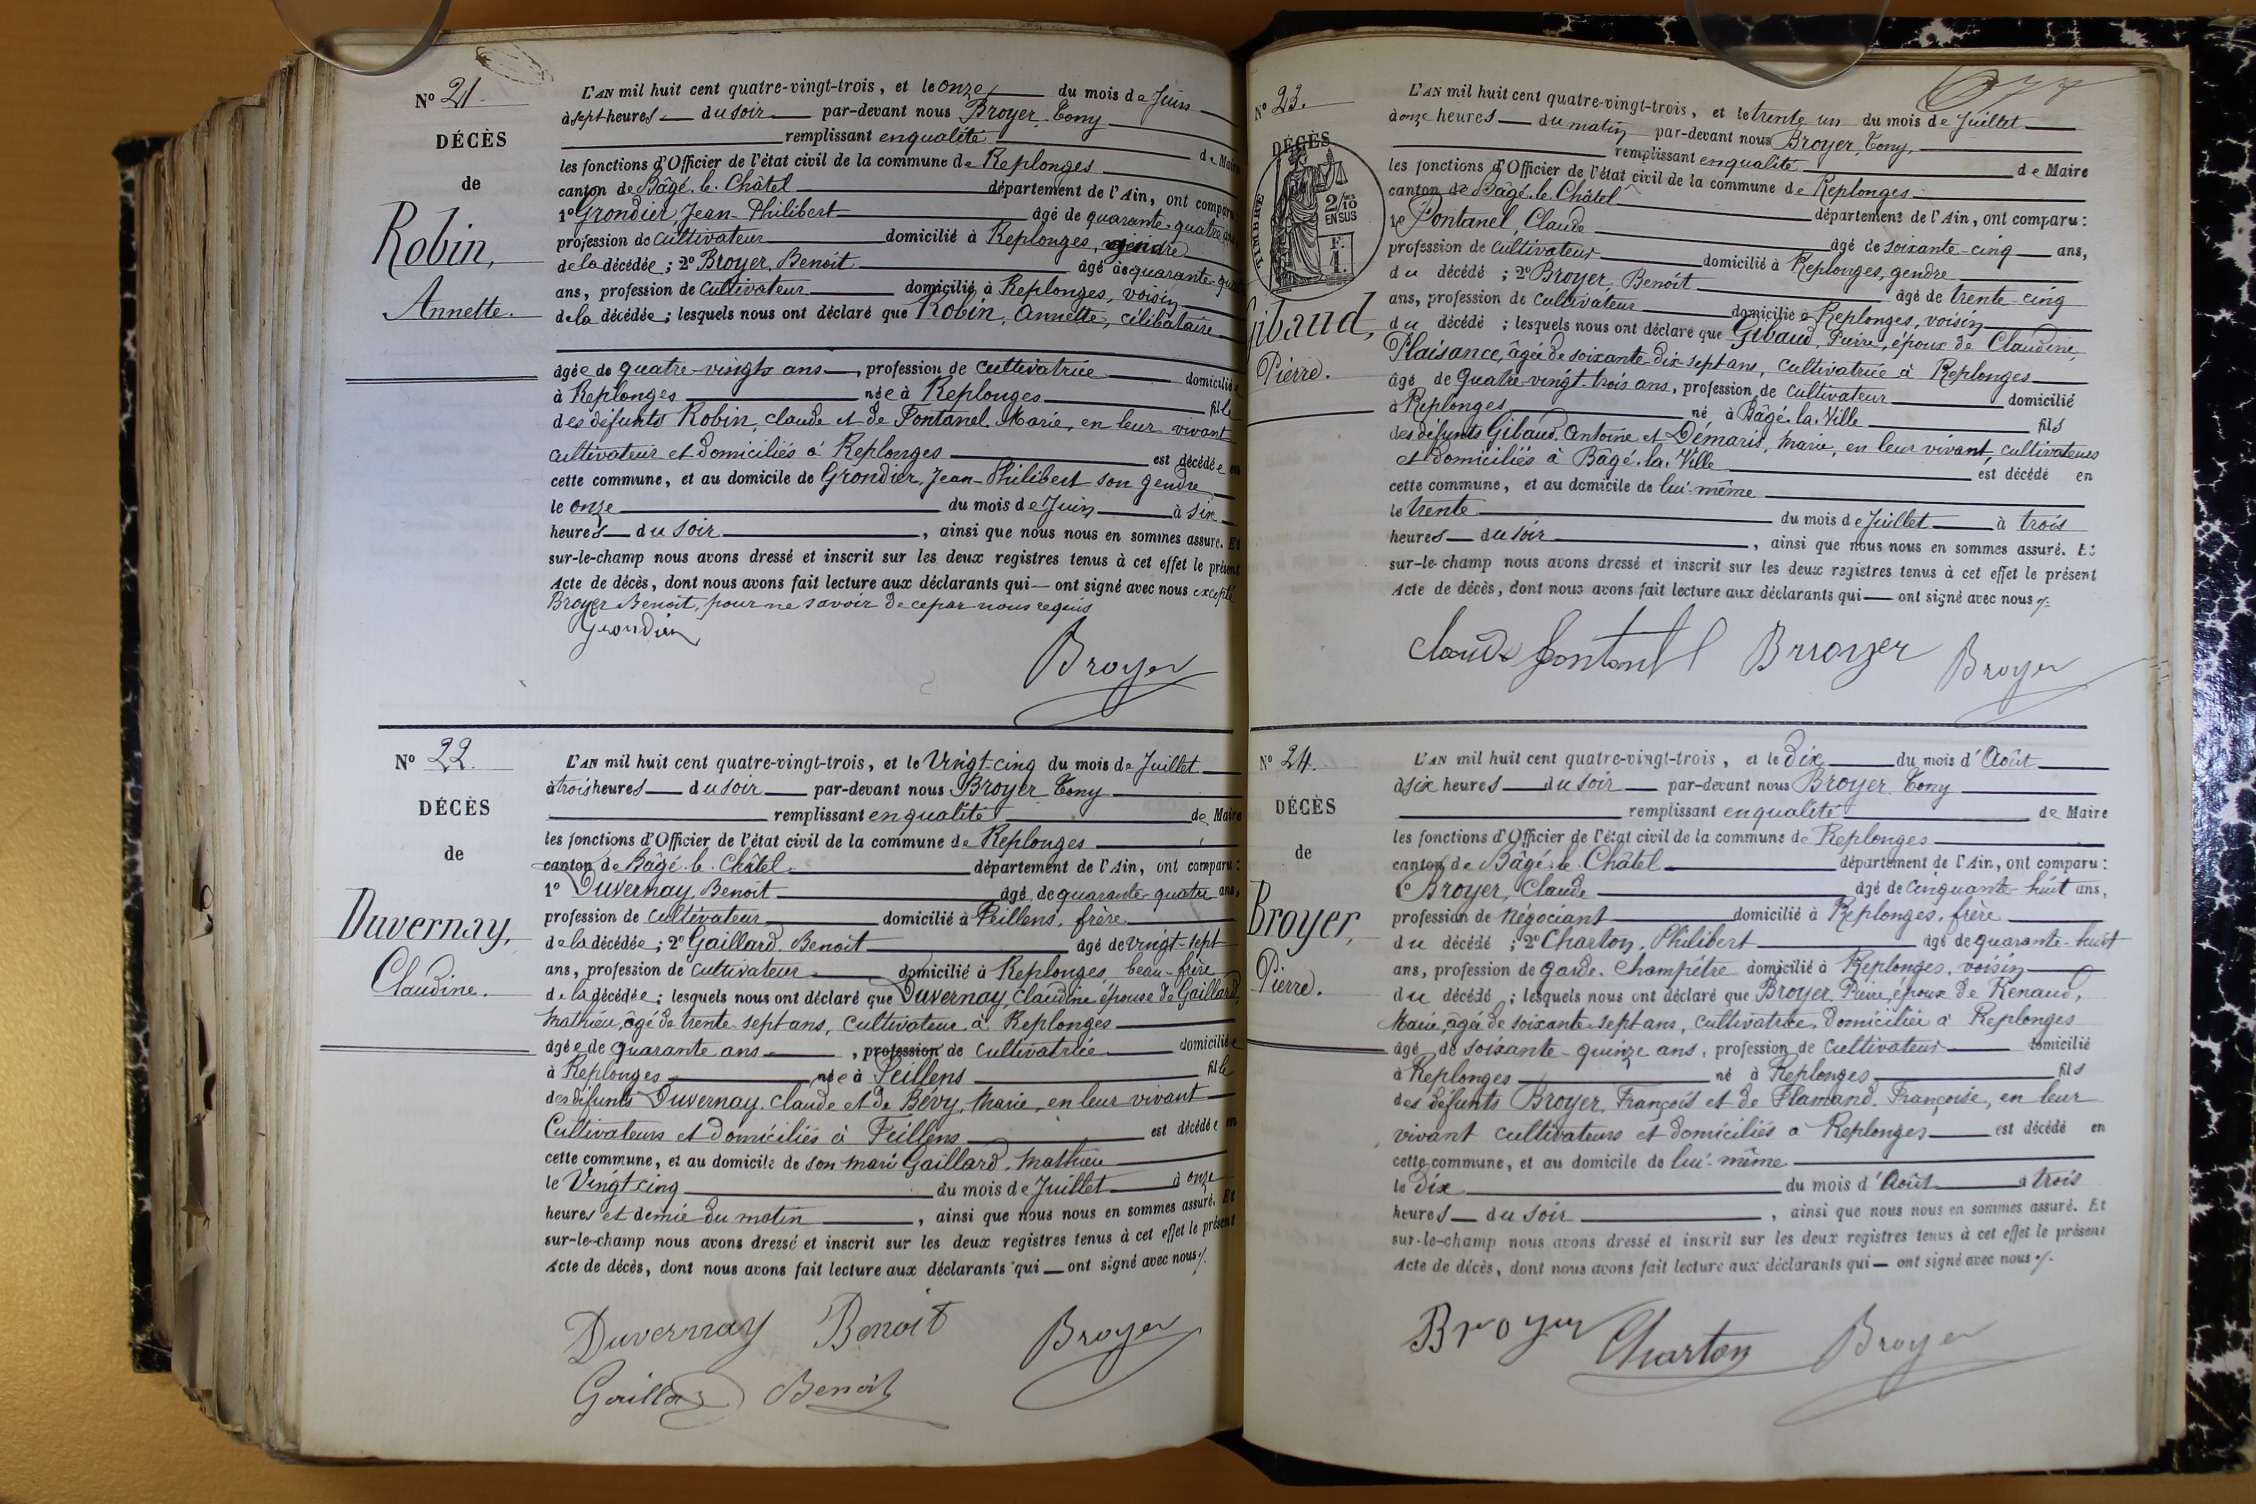 N° 21.
DÉCÈS
de
Robin,
Annette.
L'AN mil huit cent quatre-vingt-trois, et le onze du mois de Juin
à sept heures du soir par-devant nous Broyer Tony
remplissant en qualité de Maire
les fonctions d'Officier de l'état civil de la commune de Replonges
canton de Bâgé-le-Châtel département de l'Ain, ont comparu
1° Grondier, Jean-Philibert âgé de quarante-quatre ans
profession de cultivateur domicilié à Replonges, gendre
de la décédée; 2° Broyer, Benoit âgé de quarante-
ans, profession de cultivateur domicilié à Replonges, voisin
de la décédée; lesquels nous ont déclaré que Robin, Annette, célibataire
âgée de quatre-vingts ans, profession de cultivatrice domiciliée
à Replonges née à Replonges fille
des défunts Robin, claude et de Fontanel, Marie, en leur vivant
cultivateur et domiciliés à Replonges est décédée en
cette commune, et au domicile de Grondier, Jean-Philibert son gendre
le onze du mois de Juin à six
heures du soir, ainsi que nous nous en sommes assuré. Et
sur-le-champ nous avons dressé et inscrit sur les deux registres tenus à cet effet le présent
Acte de décès, dont nous avons fait lecture aux déclarants qui ont signé avec nous excepté
Broyer Benoit, pour ne savoir de ce par nous requis
Grondier
Broyer
N° 22.
DÉCÈS
de
Duvernay,
Claudine.
L'AN mil huit cent quatre-vingt-trois, et le Vingt-cinq du mois de Juillet
à trois heures du soir par-devant nous Broyer Tony
remplissant en qualité de Maire
les fonctions d'Officier de l'état civil de la commune de Replonges
canton de Bâgé-le-Châtel département de l'Ain, ont comparu:
1° Duvernay, Benoit âgé de quarante-quatre ans,
profession de cultivateur domicilié à Feillens, frère
de la décédée; 2° Gaillard, Benoit âgé de vingt-sept
ans, profession de cultivateur domicilié à Replonges, beau-frère
de la décédée; lesquels nous ont déclaré que Duvernay, Claudine épouse de Gaillard,
Mathieu, âgé de trente-sept ans, cultivateur à Replonges
âgée de quarante ans, profession de cultivatrice domiciliée
à Replonges née à Feillens fille
des défunts Duvernay, Claude et de Bevy, Marie, en leur vivant
Cultivateurs et domiciliés à Feillens est décédée en
cette commune, et au domicile de son mari Gaillard, Mathieu
le Vingt cinq du mois de Juillet à onze
heures et demie du matin, ainsi que nous nous en sommes assuré. Et
sur-le-champ nous avons dressé et inscrit sur les deux registres tenus à cet effet le présent
Acte de décès, dont nous avons fait lecture aux déclarants qui ont signé avec nous
Duvernay Benoit Broyer
Gaillard Benoit
N° 23.
DÉCÈS
TIMBRE
2/10
EN SUS
F.
1.
Gibaud,
Pierre.
L'AN mil huit cent quatre-vingt-trois, et le trente un du mois de Juillet
à onze heures du matin par-devant nous Broyer, Tony,
remplissant en qualité de Maire
les fonctions d'Officier de l'état civil de la commune de Replonges
canton de Bâgé-le-Châtel département de l'Ain, ont comparu:
1° Fontanel, Claude âgé de soixante-cinq ans,
profession de cultivateur domicilié à Replonges, gendre
du décédé; 2° Broyer, Benoit âgé de trente-cinq
ans, profession de cultivateur domicilié à Replonges, voisin
du décédé; lesquels nous ont déclaré que Gibaud, Pierre, époux de Claudine
Plaisance, âgée de soixante-dix-sept ans, cultivatrice à Replonges
âgé de Quatre-vingt-trois ans, profession de cultivateur domicilié
à Replonges né à Bâgé-la-Ville fils
des défunts Gibaud, Antoine et Démaris, Marie, en leur vivant, cultivateurs
et domiciliés à Bâgé-la-Ville est décédé en
cette commune, et au domicile de lui-même
le trente du mois de Juillet à trois
heures du soir, ainsi que nous nous en sommes assuré. Et
sur-le-champ nous avons dressé et inscrit sur les deux registres tenus à cet effet le présent
Acte de décès, dont nous avons fait lecture aux déclarants qui ont signé avec nous
Claude fontanel Brroyer Broyer
N° 24.
DÉCÈS
de
Broyer,
Pierre.
L'AN mil huit cent quatre-vingt-trois, et le Dix du mois d'Août
à six heures du soir par-devant nous Broyer Tony
remplissant en qualité de Maire
les fonctions d'Officier de l'état civil de la commune de Replonges
canton de Bâgé-le-Châtel département de l'Ain, ont comparu:
1° Broyer, Claude âgé de cinquante-huit ans,
profession de Négociant domicilié à Replonges, frère
du décédé; 2° Charton, Philibert âgé de quarante-huit
ans, profession de garde-champêtre domicilié à Replonges, voisin
du décédé; lesquels nous ont déclaré que Broyer, Pierre, époux de Renaud,
Marie, âgée de soixante-sept ans, cultivatrice, domiciliée à Replonges
âgé de soixante-quinze ans, profession de cultivateur domicilié
à Replonges né à Replonges fils
des défunts Broyer, François et de Flamand, Françoise, en leur
vivant cultivateurs et domiciliés à Replonges est décédé en
cette commune, et au domicile de lui-même
le Dix du mois d'Août à trois
heures du soir, ainsi que nous nous en sommes assuré. Et
sur-le-champ nous avons dressé et inscrit sur les deux registres tenus à cet effet le présent
Acte de décès, dont nous avons fait lecture aux déclarants qui ont signé avec nous
Broyer Charton Broyer